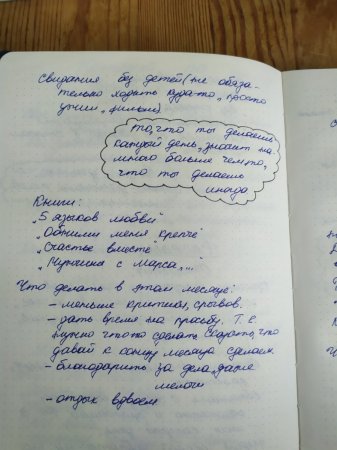 Свидания без детей (не обяза-
тельно ходить куда-то, просто
ужин, фильм)
То, что ты делаешь
каждый день, значит на-
много больше чем то,
что ты делаешь
иногда
Книги:
„5 языков любви"
„Обними меня крепче"
„Счастье вместе"
„Мужчины с Марса,..."
Что делать в этом месяце:
- меньше критики, срывов.
- дать время на просьбу. Т.е.
нужно что-то сделать. Сказать, что
давай к концу месяца сделаем
- благодарить за дела, даже
мелочи
- отдых вдвоем